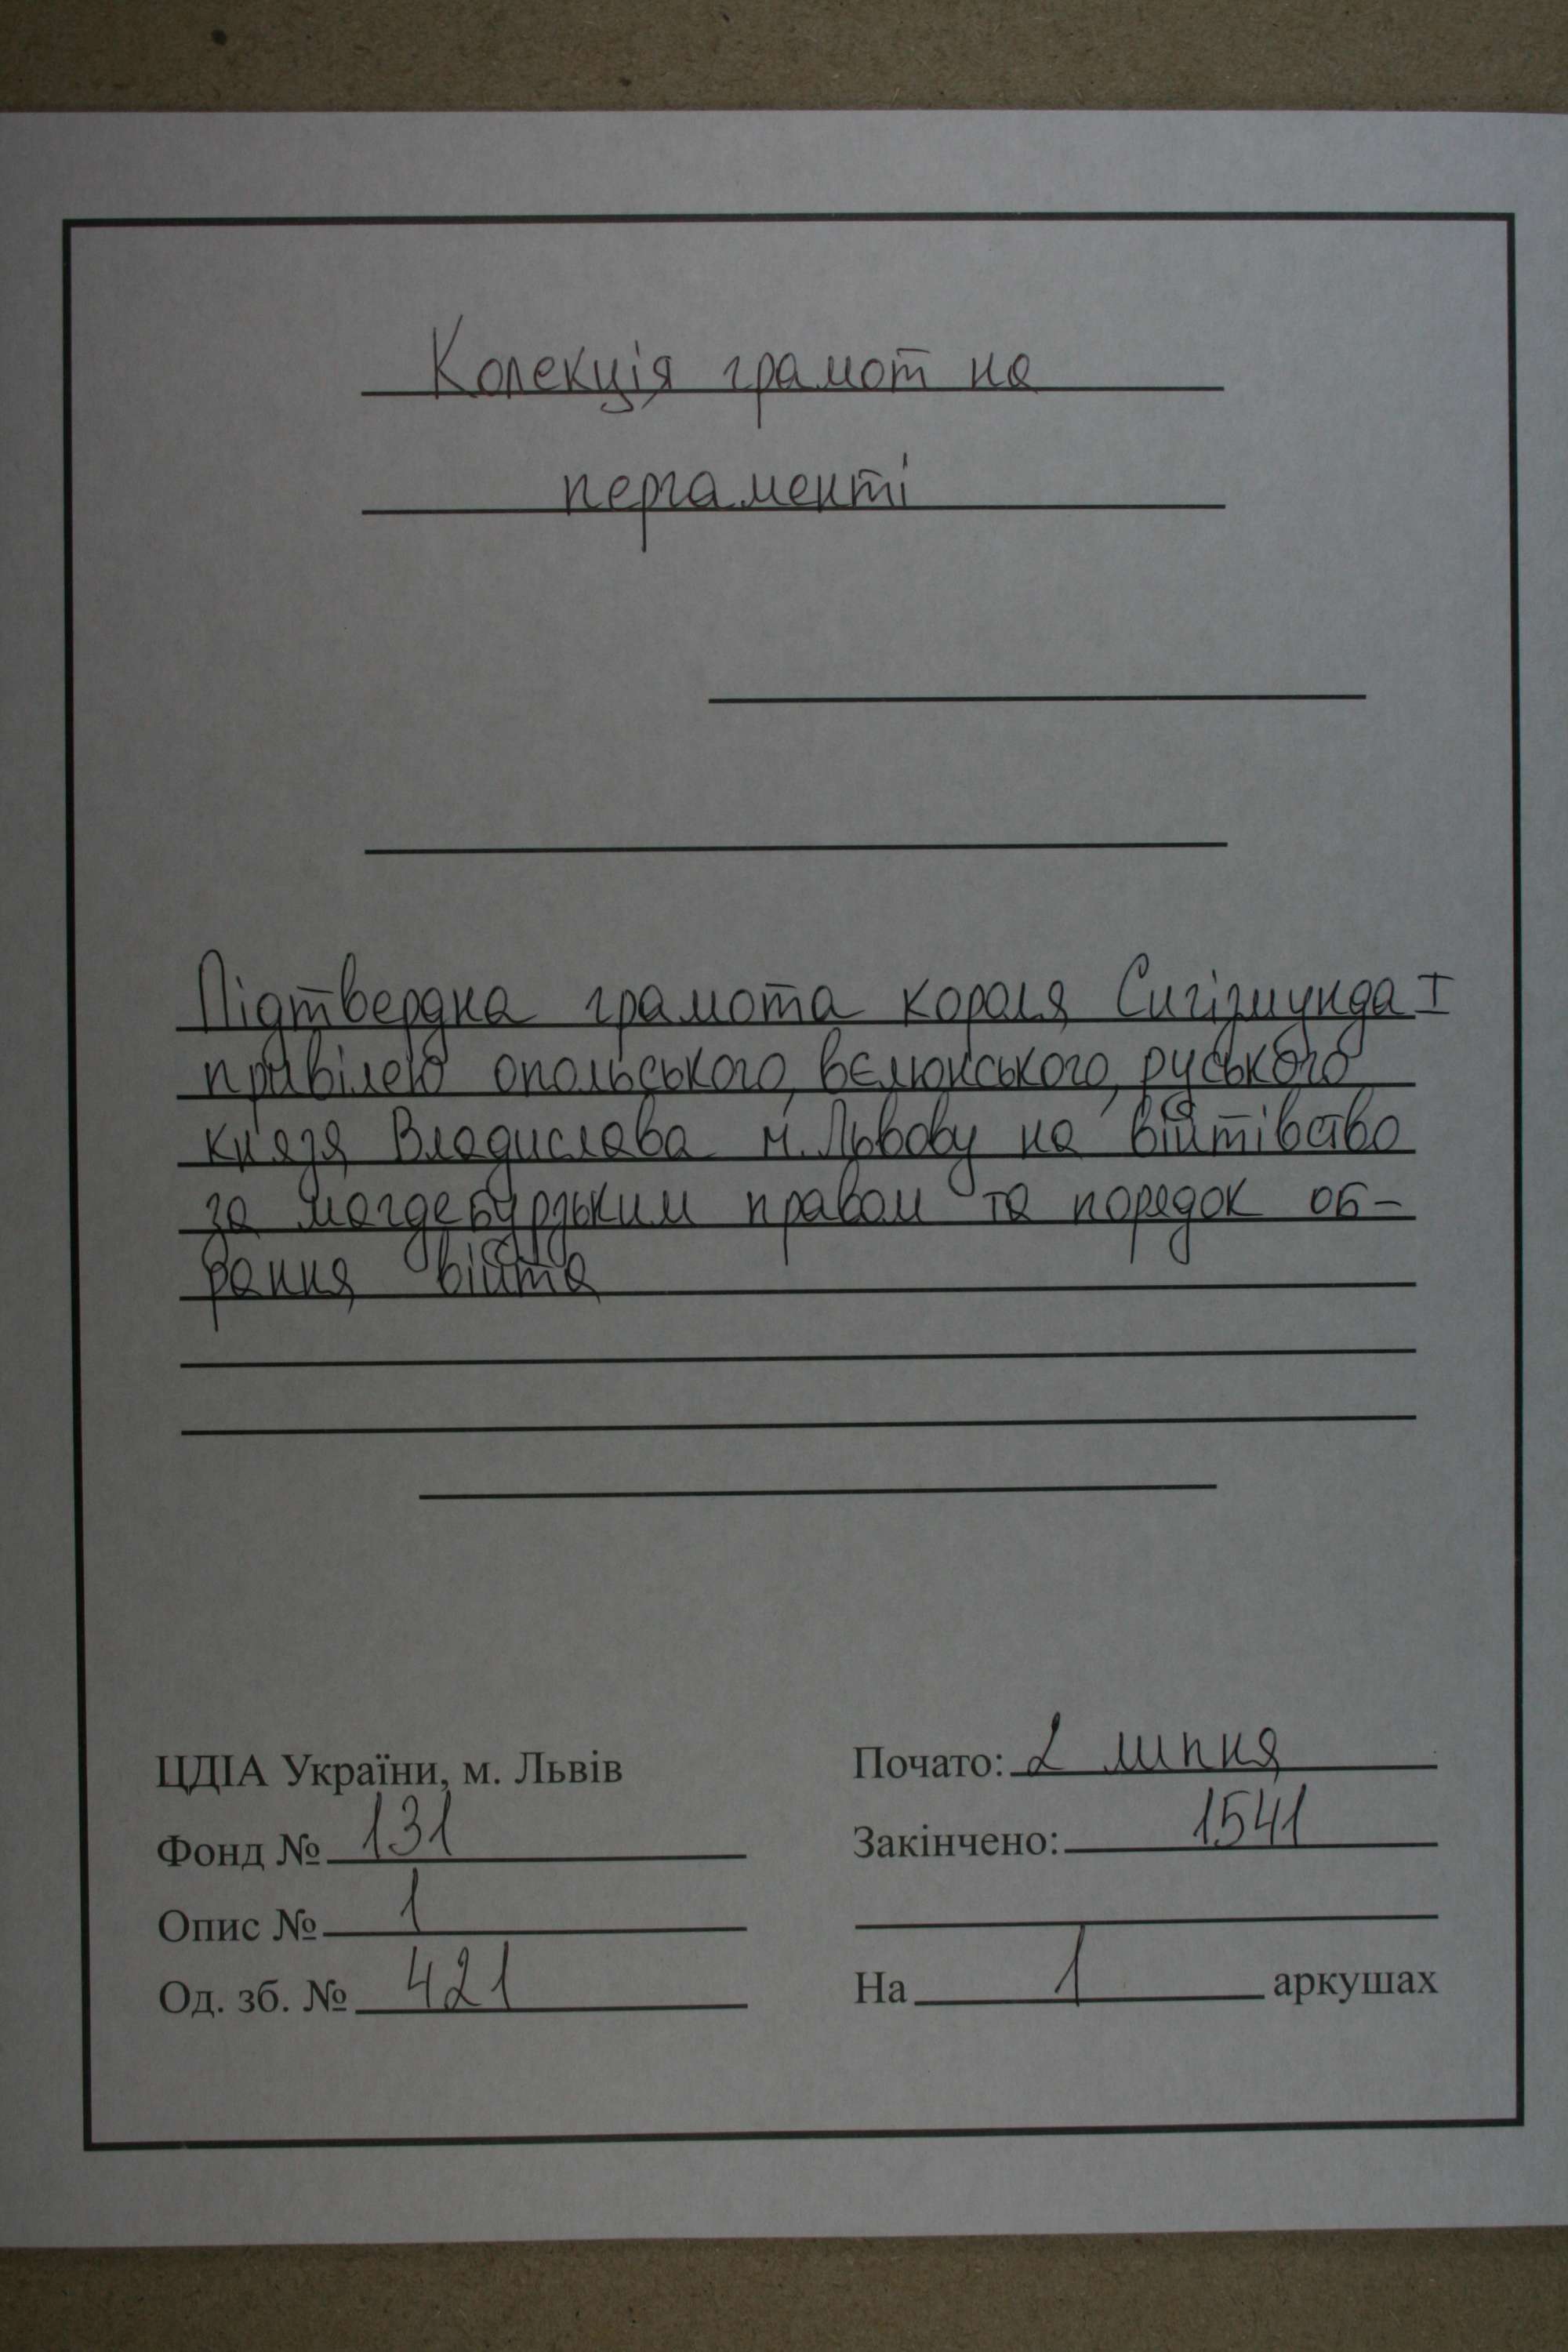 Колекція грамот на
пергаменті
Підтвердна грамота короля Сигізмунда I
привілею опольського, вєлюнського, руського
князя Владислава м. Львову на війтівство
за магдебурзьким правом та порядок об-
рання війта
ЦДІА України, м. Львів
Фонд № 131
Опис № 1
Од. зб. № 421
Почато: 2 липня
Закінчено: 1541
На 1 аркушах